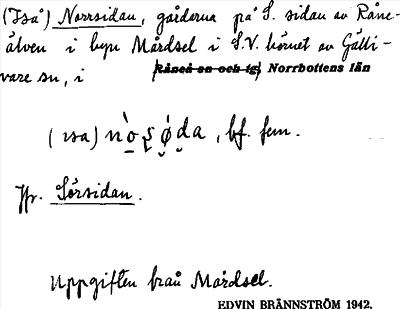 ("Iså") Norrsidan, gårdarna på S. sidan av Råne-
älven i byn Mårdsel i S.V. hörnet av Gälli-
vare sn, i Råneå sn och tg, Norrbottens län
(ısa) , bf. fem.
Jfr. Sörsidan.
Uppgiften från Mårdsel.
EDVIN BRÄNNSTRÖM 1942.